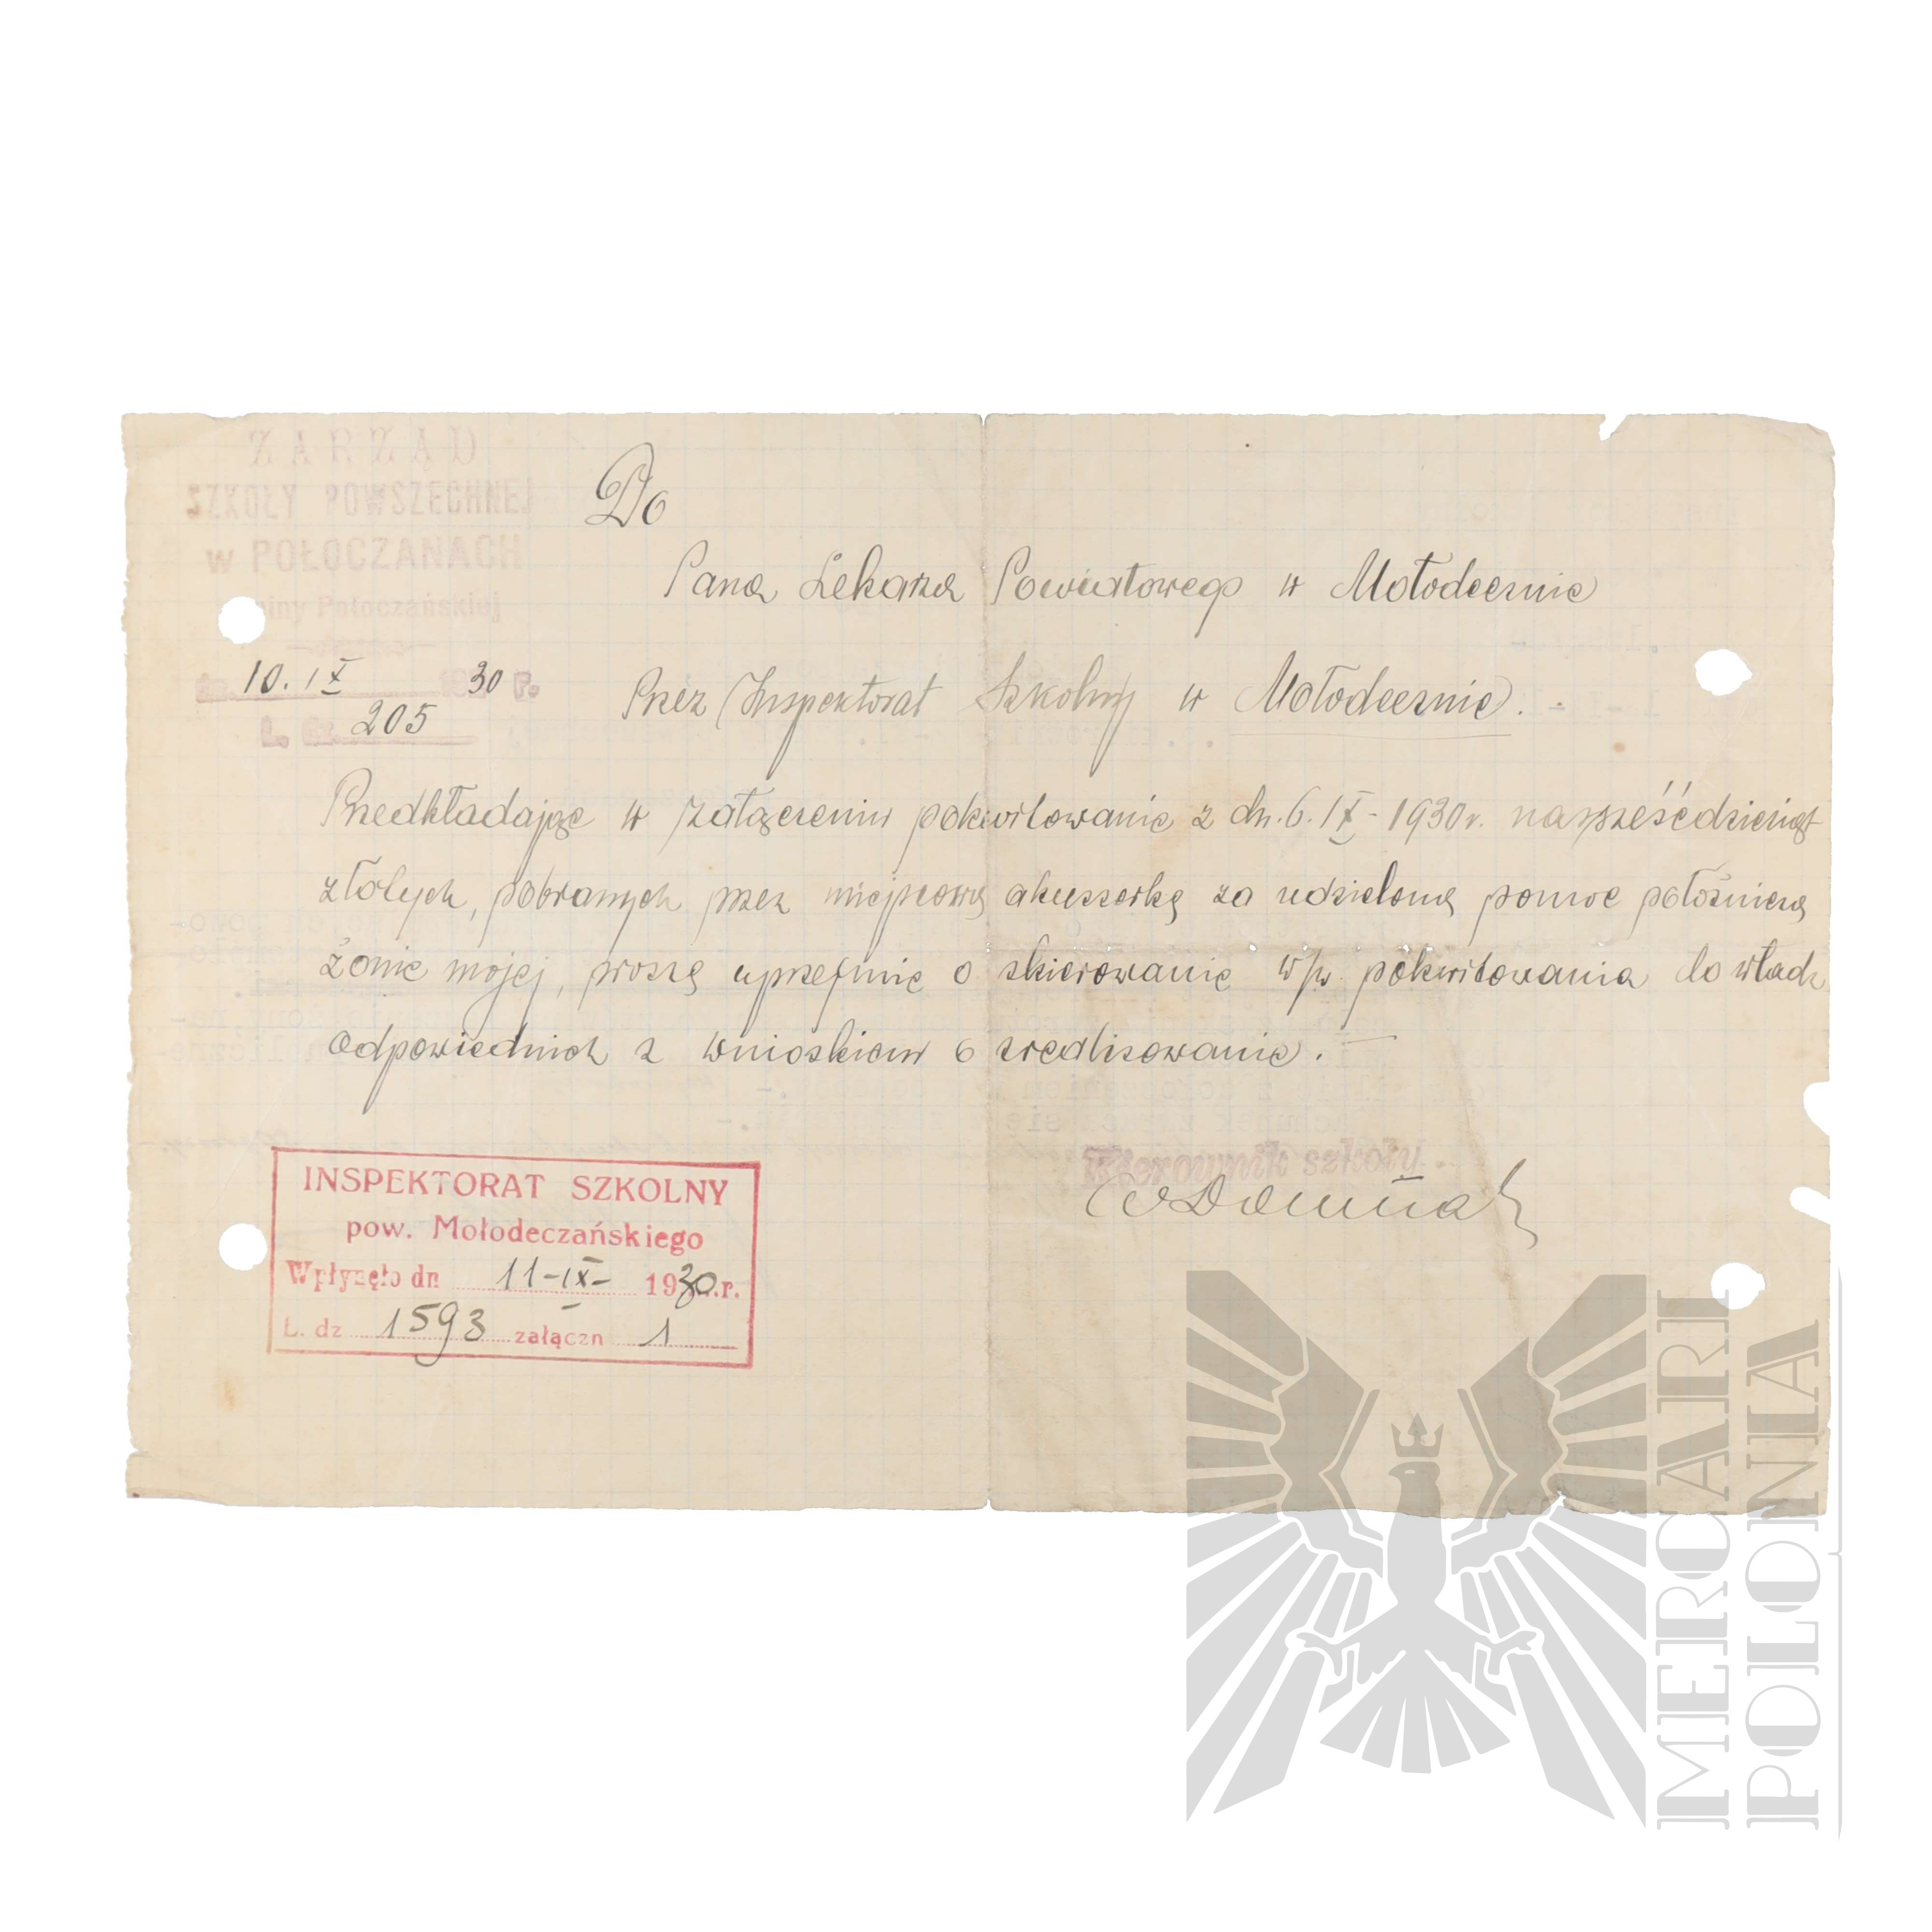 ZARZĄD
SZKOŁY POWSZECHNEJ
w POŁOCZANACH
Połoczańskiej
10. IX 1930 r.
L. dz. 205
Do
Pana Lekarza Powiatowego w Mołodecznie
Przez Inspektorat Szkolny w Mołodecznie.
Przedkładając w załączeniu pokwitowanie z dn. 6. IX - 1930 r. na sześćdziesiąt
złotych, pobranych przez miejscową akuszerkę za udzieloną pomoc położniczą
żonie mojej, proszę uprzejmie o skierowanie w/w pokwitowania do władz
odpowiednich z wnioskiem o zrealizowanie.
Kierownik szkoły
INSPEKTORAT SZKOLNY
pow. Mołodeczańskiego
Wpłynęło dn 11-IX- 1930.r.
L. dz 1593 załączn 1
MERCARI
POLONIA